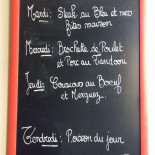 Mardi : Steak au Bleu et nos
frites maison
Mercredi : Brochette de Poulet
et Porc au Tandoori
Jeudi : Couscous au Boeuf
et Merguez
Vendredi : Poisson du jour